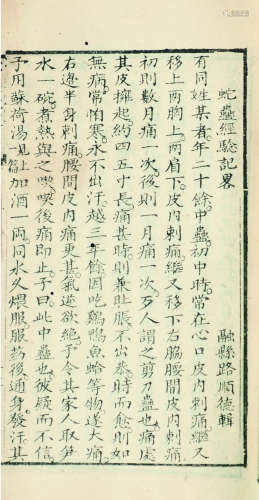 蛇蠱經驗記畧
融縣路順德輯
有同姓某者年二十餘中蠱初中時常在心口皮内刺痛繼又
移上兩胸上兩肩下皮内刺痛繼又移下右脇腰間皮内刺痛
初則数月痛一次後則一月痛一次歹人謂之剪刀蠱也痛處
其皮擁起約四五寸長痛甚時則兼肚脹不出恭時而愈則如
無病常怕寒永不出汗越三年餘因吃鷄鴨魚蛤等物遂大痛
右邊半身刺痛腰間皮内痛更甚氣逆欲絶予令其家人取笋
水一碗煮熱與之喫喫後痛即止予曰此中蠱也彼疑而不信
予用蘇荷湯加酒一兩同水久煨服服葯後通身發汗其